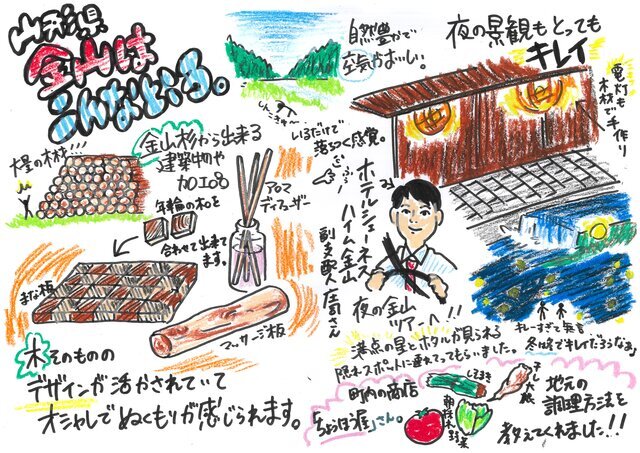 山形県
金山は
こんなところ。
自然豊かで
空気がおいしい。
しんこきゅう〜
いるだけで
落ちつく感覚。
夜の景観もとっても
キレイ
電灯も
木材で手作り
大量の木材!!!
金山杉から出来る
建築物や
加工品
年輪の木を
合わせて出来て
ます。
まな板
アロマ
ディフューザー
マッサージ板
木そのものの
デザインが活かされていて
オシャレでぬくもりが感じられます。
ホテルシェーネス
ハイム金山
副支配人 庄司さん
夜の金山
ツアー!!
満点の星とホタルが見られる
隠れスポットに連れてってもらいました。
キレーすぎて無言
冬は雪でキレイだろうなぁ
町内の商店
「ちょうほう屋」さん。
干し大根
朝採れ野菜
地元の
調理方法を
教えてくれました!!